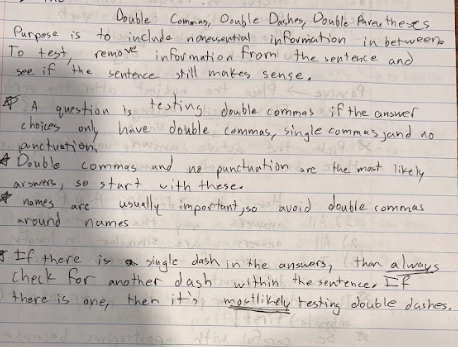 Double Commas, Double Dashes, Double Parentheses
Purpose is to include nonessential information in between.
To test, remove information from the sentence and
see if the sentence still makes sense.
A question is testing double commas if the answer
choices only have double commas, single commas, and no
punctuation.
Double commas and no punctuation are the most likely
answers, so start with these.
names are usually important, so avoid double commas
around names
If there is a single dash in the answers, than always
check for another dash within the sentence. If
there is one, then it's mostlikely testing double dashes.